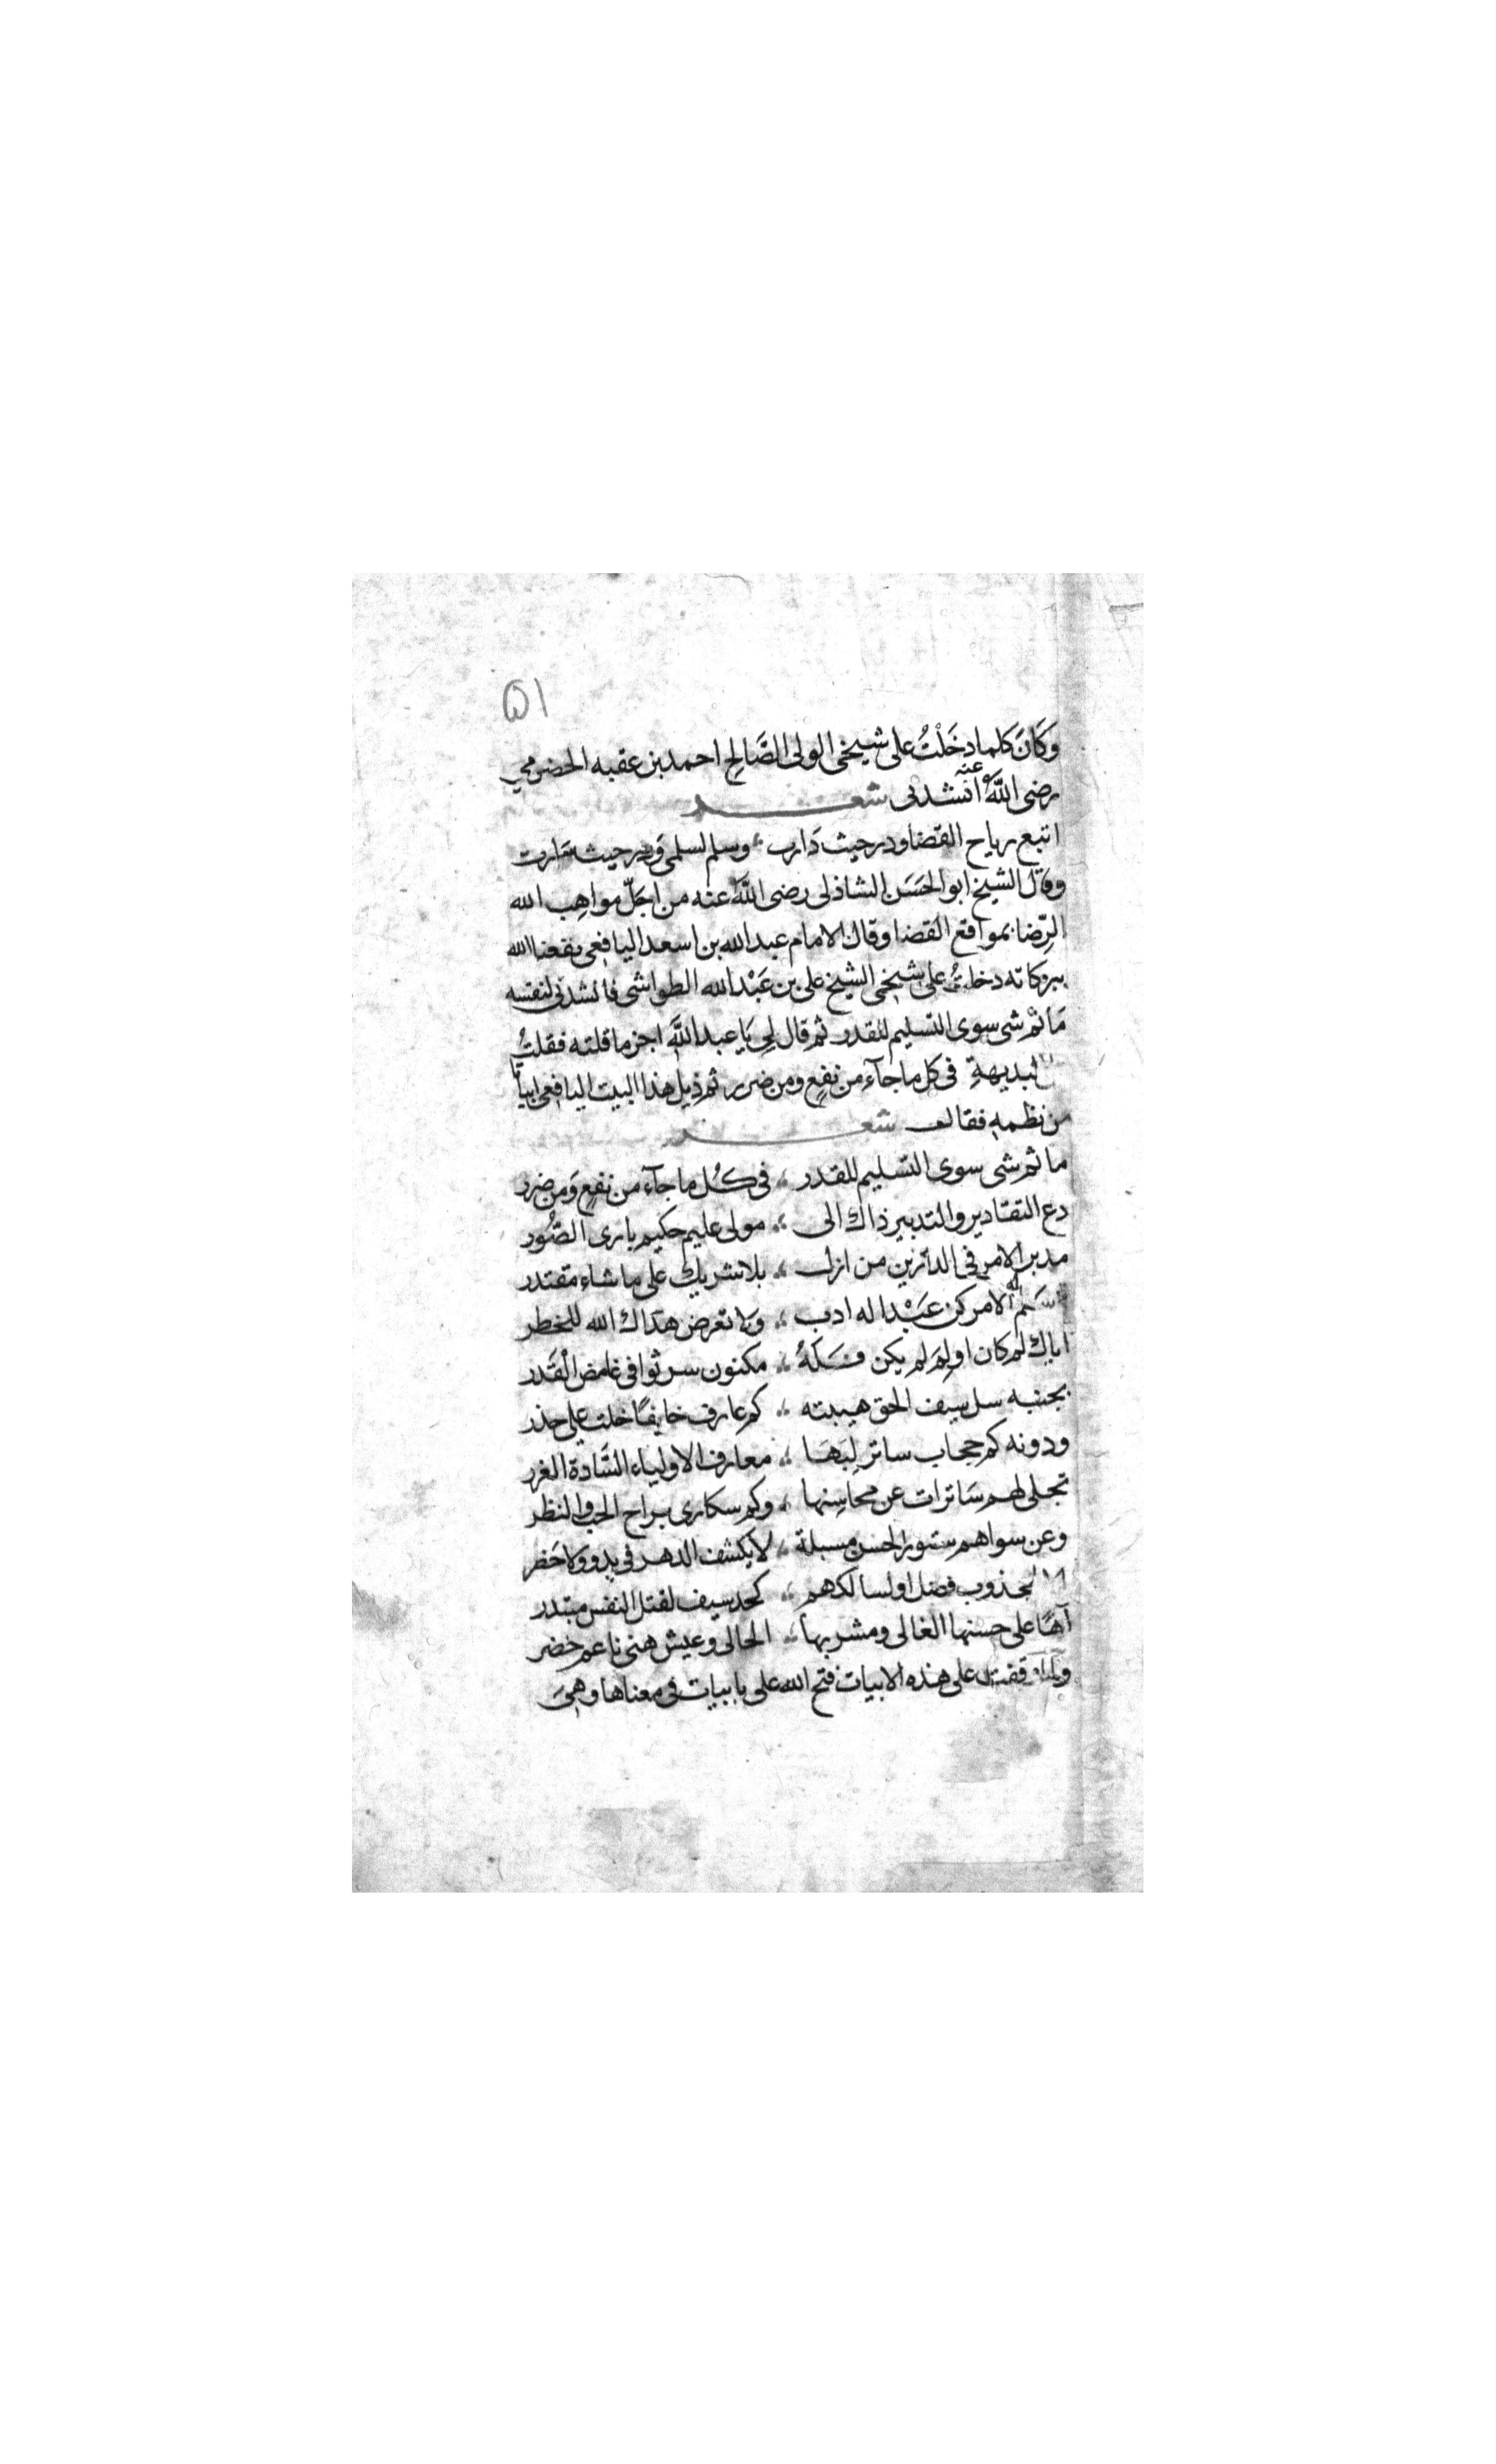 ٥١
وَكَانَ كلما دخَلْتُ على شيخى الولى الصَّالِح احمد بن عقبه الحضرمي
رضى اللهُ عنه انشدنى شعـــر
اتبع رياح القضا ودر حيث دَارت وسلم لسلمى وَدر حيث سَارت
وقال الشيخ ابو الحَسَن الشاذلى رضى اللهَ عنه من اجَلّ مواهِب الله
الرِّضا بمواقع القضا وقال الامام عبد الله بن اسعد اليافعى نفعنا الله
ببركاته دخلتُ على شيخى الشيخ على بن عَبْد الله الطواشى فانشدنى لنفسه
مَا ثم شى سوى التسليم للقدر ثم قال لِى يَا عبد اللهِ اجز ما قلته فقلتُ
لبديهةِ فى كل ما جآءَ من نفعٍ ومن ضرر ثم ذيل هذا البيت اليافعى ابياتًا
من نظمهِ فقال شعـــر
ما ثم شى سوى التسليم للقدر فى كُل ما جآء من نفعٍ وَمن ضرر
دع التقادير والتدبير ذاك الى مولى عليم حكيم بارى الصُّور
مدبر الامر فى الدارين من ازل بلا شريك على ما شاء مقتدر
سَلم له الامر كن عَبْدا له ادب وَلا تعرض هدَاك الله للخطر
اياك لم كان او لِمَ لم يكن فـَلَهُ مكنون سر ثوا فى غامض الْقَدر
بجنبه سل سيف الحق هيبته كم عارف خايفًا خلت على حذر
ودونه كم حجاب ساتر لِبَهَا معارف الاولياء السَّادة الغرر
تجلى لهم سَاترات عن محاسِنها وكم سكارى براح الحب والنظر
وعن سواهم ستور الحسن مسبلة لا يكشف الدهر فى بدو ولا حَضر
لمجذوب فضل او لسالكهم كحد سيف لقتل النفس مبتدر
آهًا على حسنها الغالى ومشربها الحالى وعيش هنى ناعم خضر
ولما وقفت على هذه الابيات فتح الله على بابيات فى معناها وهِىَ